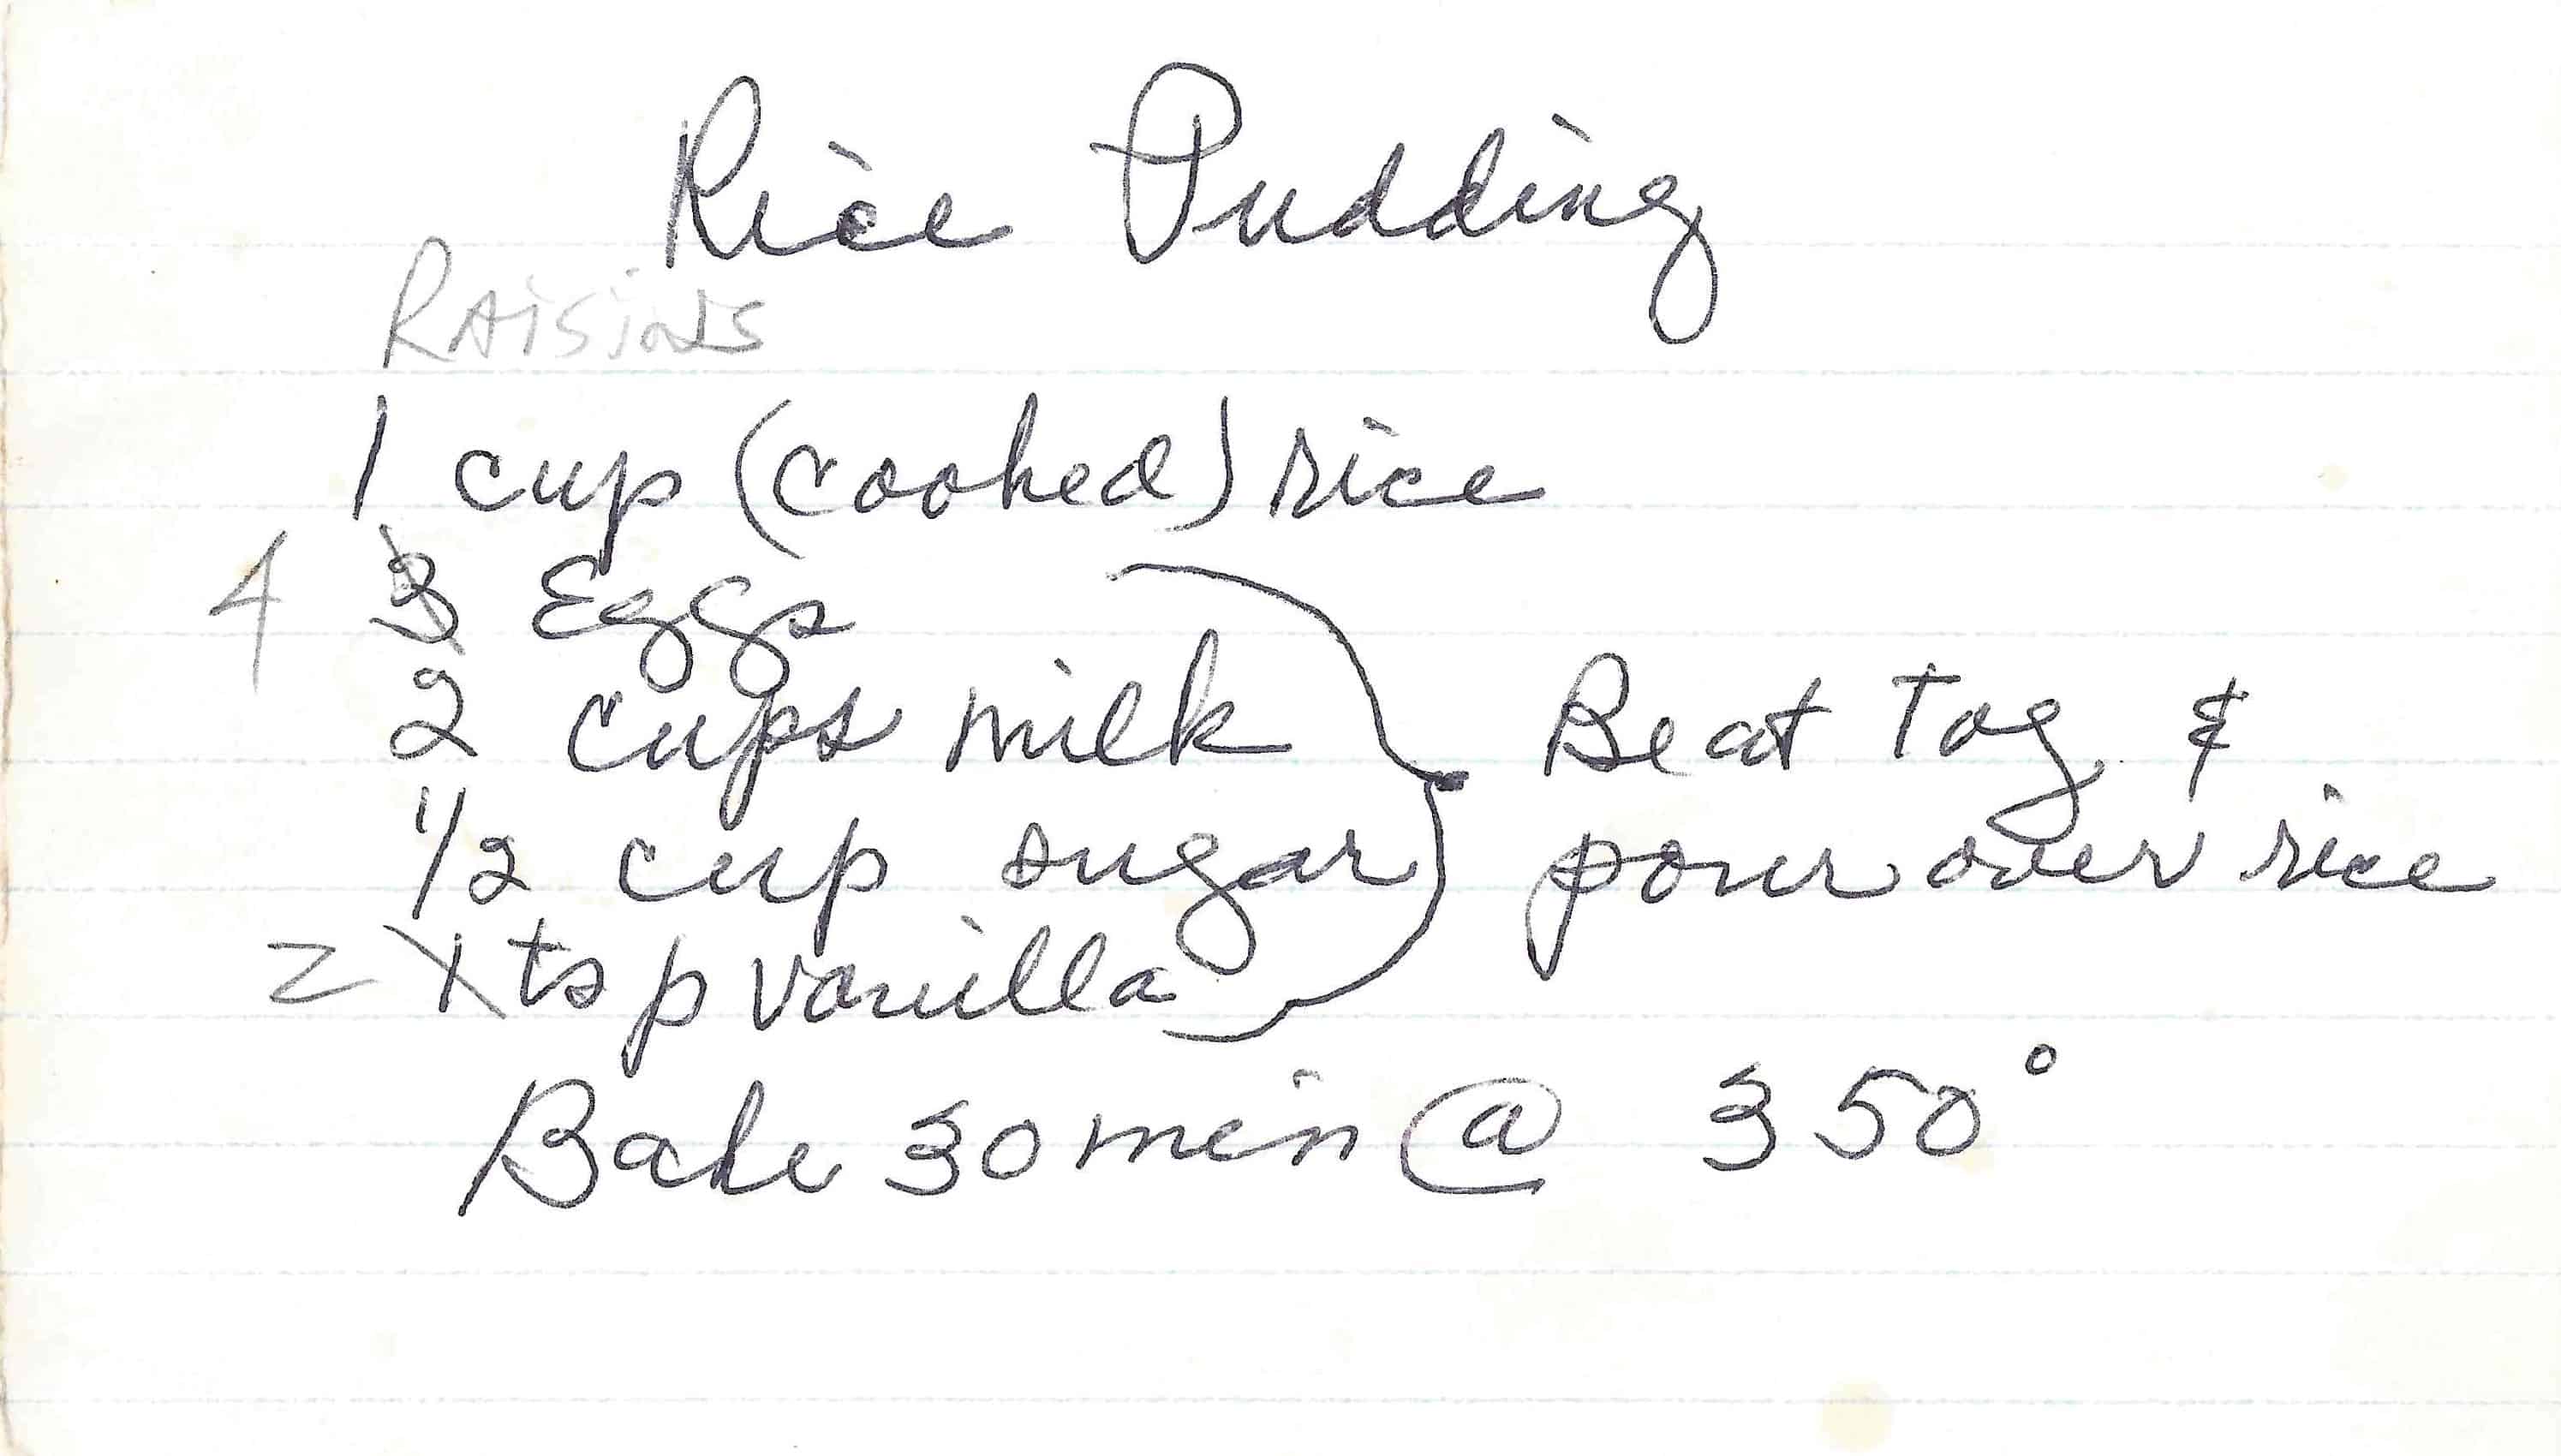 Rice Pudding
RAisiNS
1 cup (cooked) rice
4 3 Eggs
2 cups milk Beat Tog &
1/2 cup sugar pour over rice
2 1 tsp vanilla
Bake 30 min @ 350°